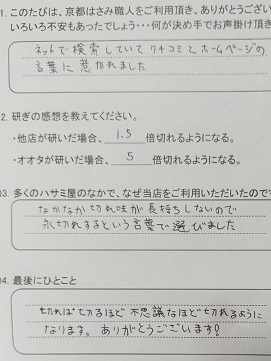 1. このたびは、京都はさみ職人をご利用頂き、ありがとうござい
いろいろ不安もあったでしょう･･･何が決め手でお声掛け頂き
ネットで検索していて クチコミとホームページの
言葉に惹かれました
2. 研ぎの感想を教えてください。
・他店が研いだ場合、1.5 倍切れるようになる。
・オオタが研いだ場合、5 倍切れるようになる。
03. 多くのハサミ屋のなかで、なぜ当店をご利用いただいたのです
なかなか切れ味が長持ちしないので
永切れするという言葉で選びました
04. 最後にひとこと
切れば切るほど不思議なほど切れるように
なります。ありがとうございます!